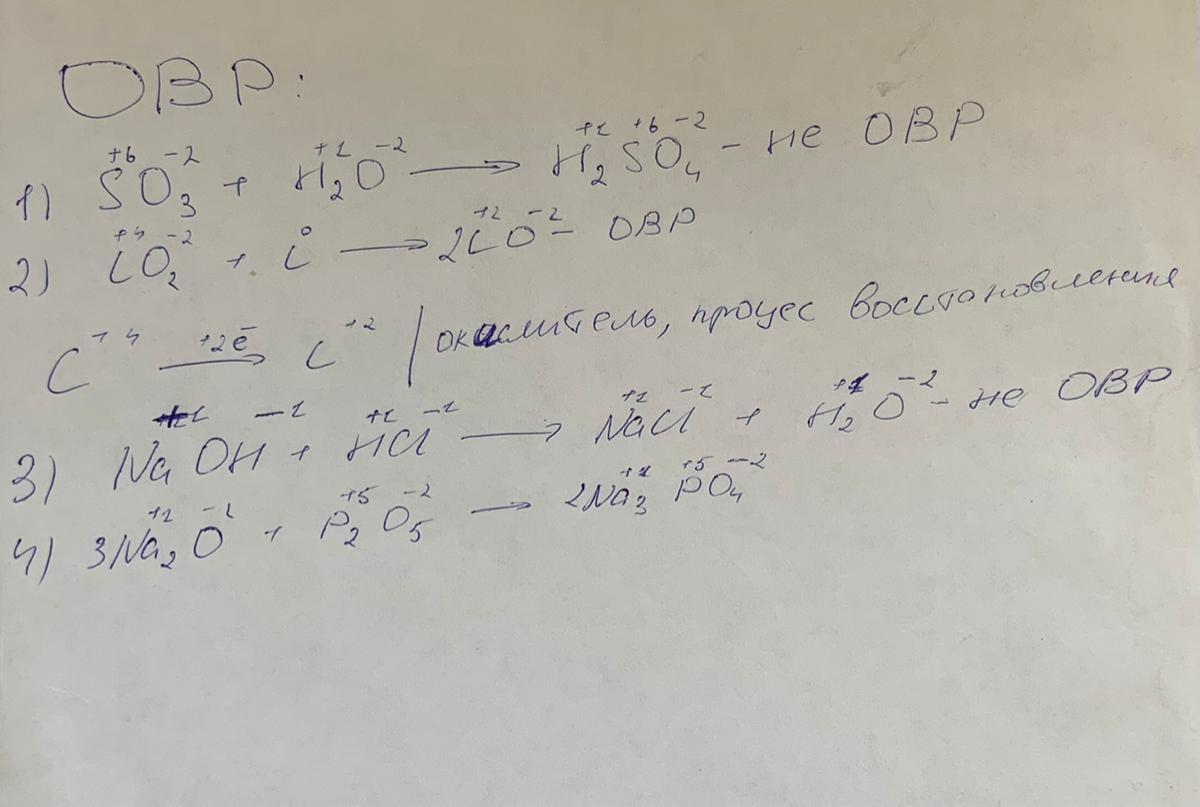 ОВР:
1) S⁺⁶O₃⁻² + H₂⁺¹O⁻² → H₂⁺¹S⁺⁶O₄⁻² - не ОВР
2) C⁺⁴O₂⁻² + C⁰ → 2C⁺²O⁻² - ОВР
C⁺⁴ +2ē→ C⁺² | окислитель, процес восстановления
3) Na⁺¹OH⁻¹ + H⁺¹Cl⁻¹ → Na⁺¹Cl⁻¹ + H₂⁺¹O⁻² - не ОВР
4) 3Na₂⁺¹O⁻¹ + P₂⁺⁵O₅⁻² → 2Na₃⁺¹P⁺⁵O₄⁻²